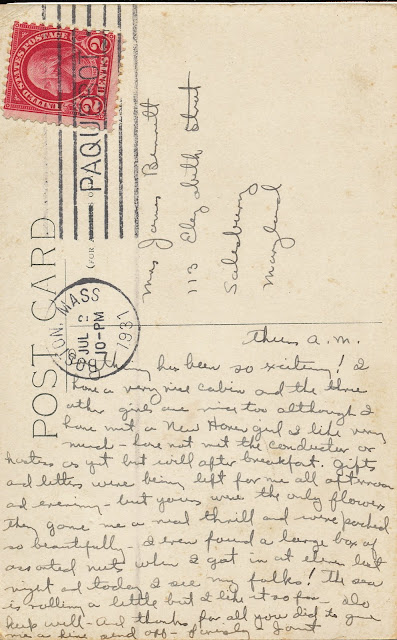 UNITED STATES POSTAGE
2 CENTS 2
PAQUEBOT
BOSTON, MASS
JUL 2
10-PM
1931
POST CARD
Mrs James Bennett
113 Elizabeth Street
Salesbury
Maryland
Thurs a.m.
has been so exciting! I
have a very nice cabin and the three
other girls are nice too although I
have met a New Haven girl I like very
much - have not met the conductor or
hostess as yet but will after breakfast. Gifts
and letters were being left for me all afternoon
and evening - but yours were the only flowers
They gave me a real thrill and were packed
so beautifully - I even found a large box of
assorted nuts when I got in at eleven last
night and today I see my folks! The sea
is rolling a little but I like it so far - Do
keep well - And thanks for all you did to give
me a fine send off -